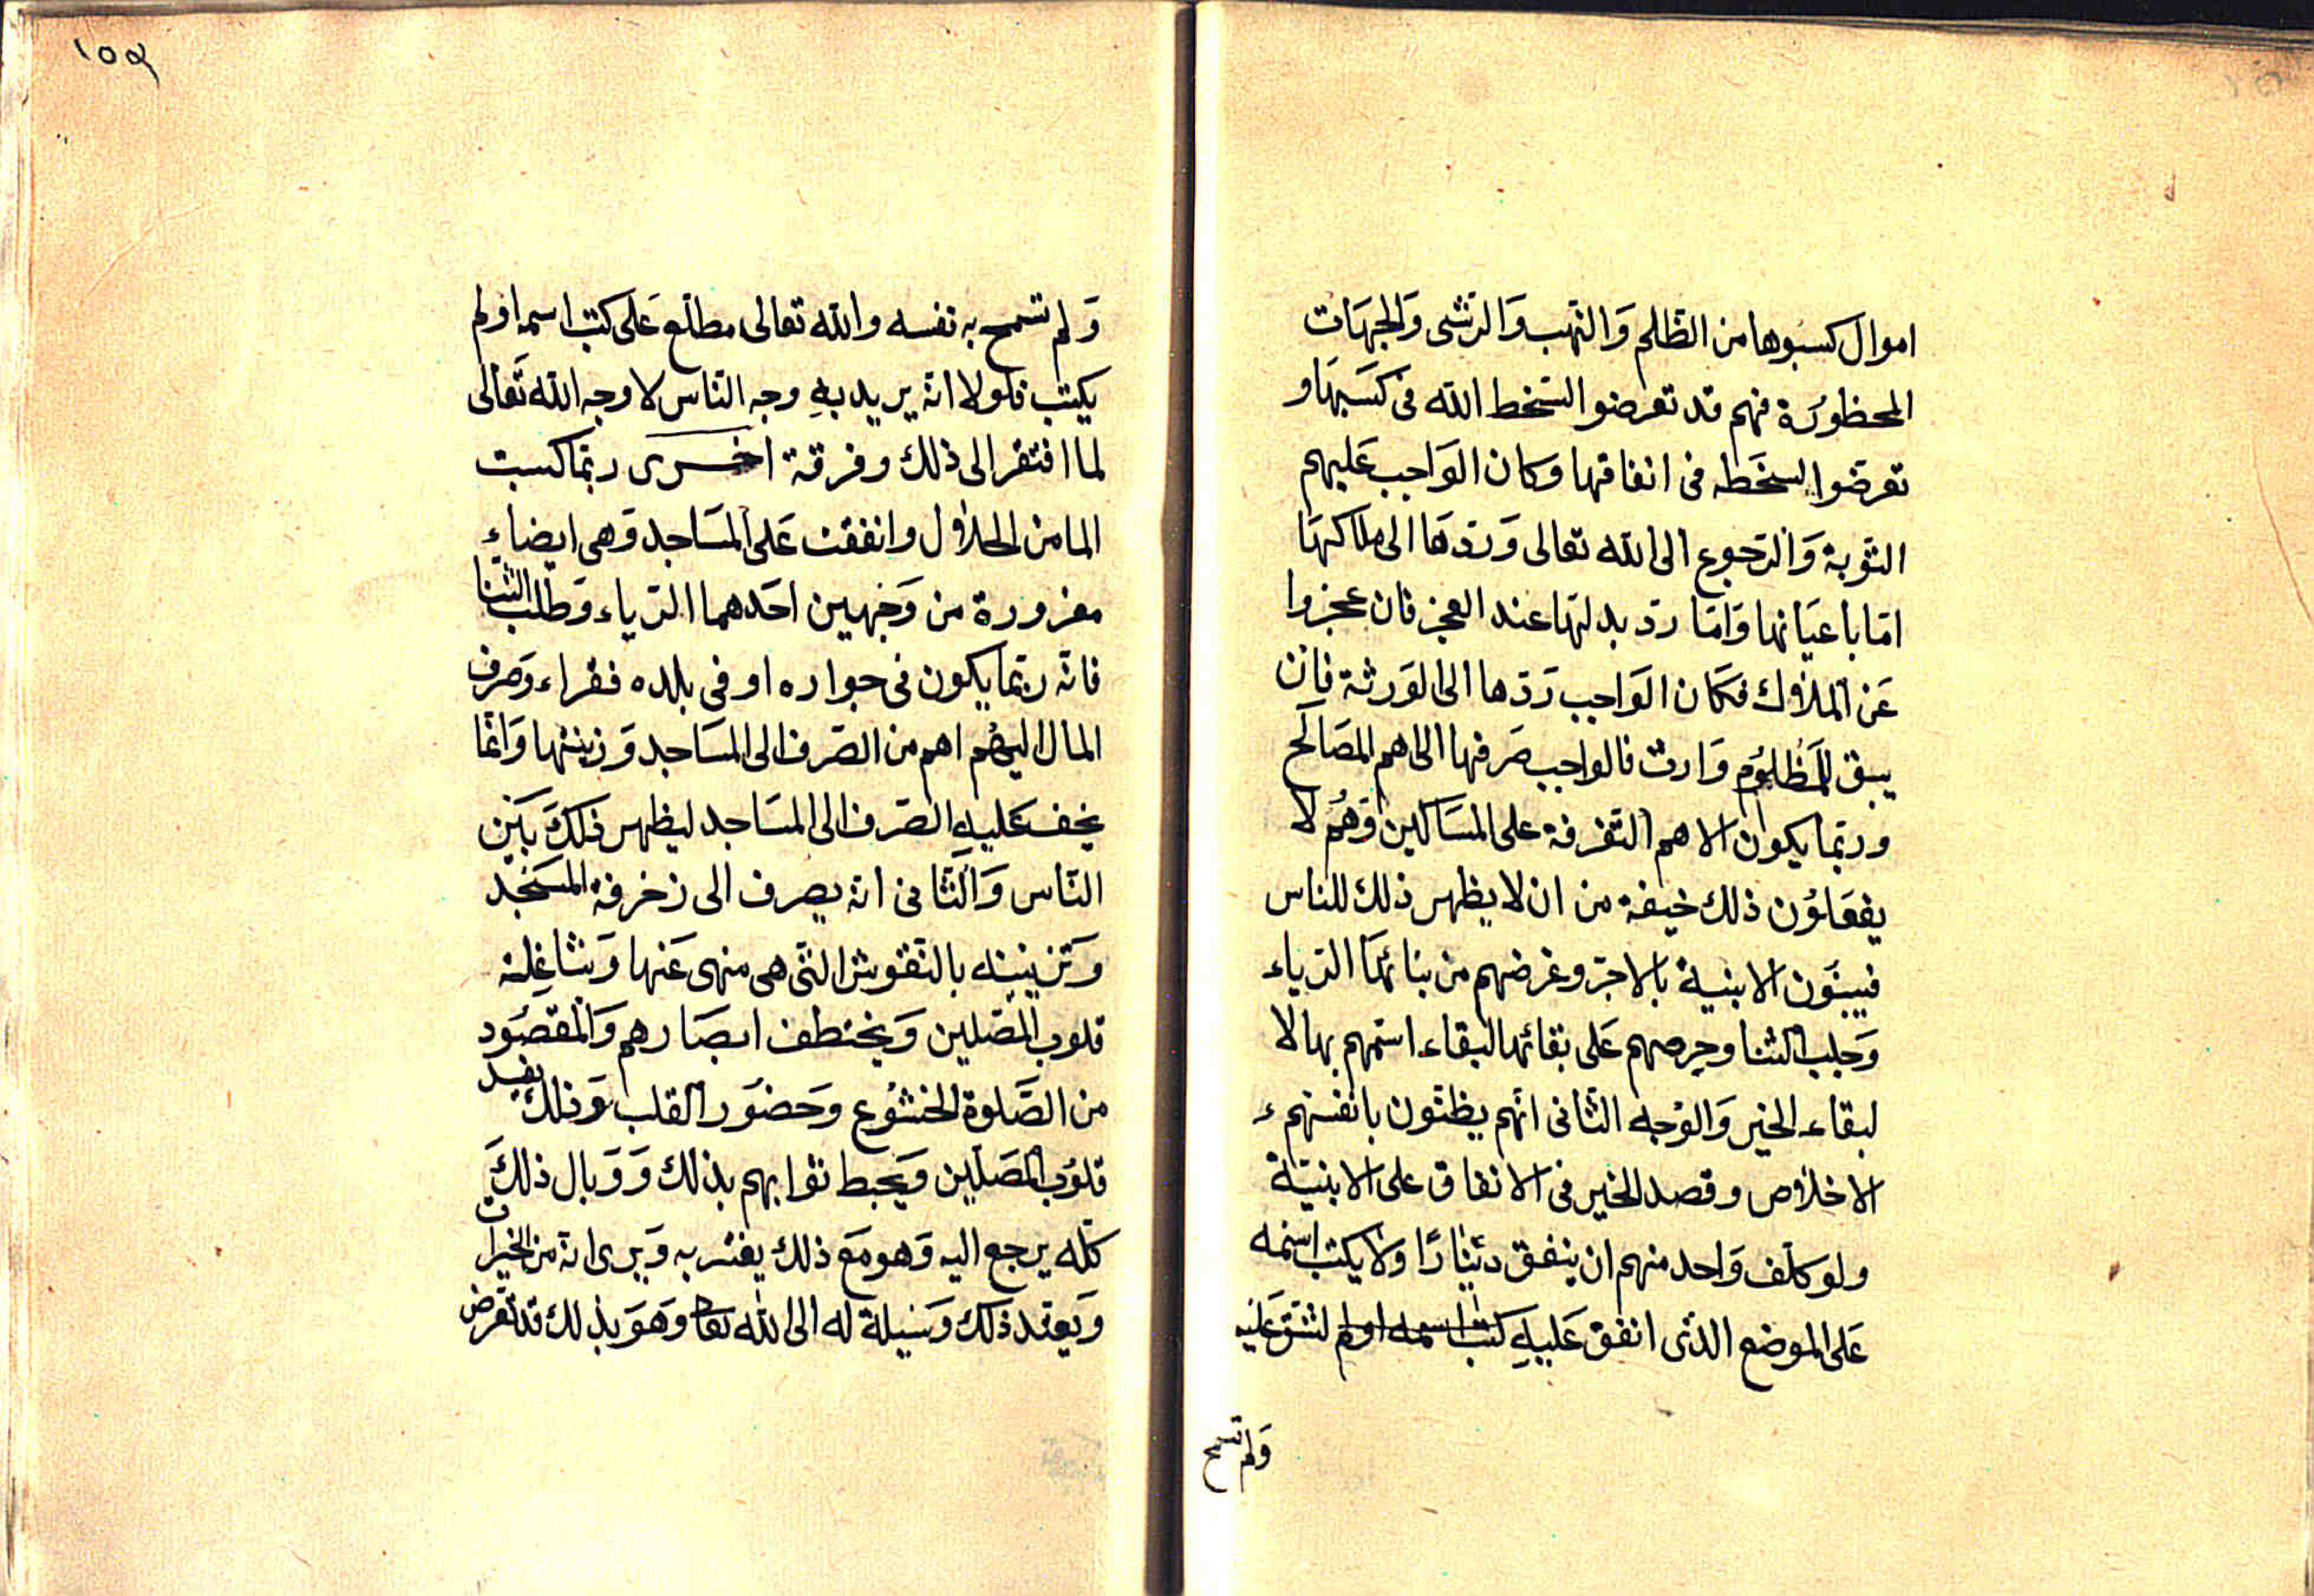 اموال كسبوها من الظلم والنهب والرشى والجهات
المحظورة فهم قد تعرضوا لسخط الله فى كسبها و
تعرضوا لسخطه فى انفاقها وكان الواجب عليهم
التوبة والرجوع الى الله تعالى وردها الى ملاكها
اما باعيانها واما رد بدلها عند العجز فان عجزوا
عن الملاك فكان الواجب ردها الى الورثة فان
يبق للمظلوم وارث فالواجب صرفها الى اهم المصالح
وربما يكون الاهم التفرقة على المساكين وهم لا
يفعلون ذلك خيفة من ان لا يظهر ذلك للناس
فيبنون الابنية بالاجر وغرضهم من بنائها الرياء
وجلب الثنا وحرصهم على بقائها لبقاء اسمهم بها لا
لبقاء الخير والوجه الثانى انهم يظنون بانفسهم
الاخلاص وقصد الخير فى الانفاق على الابنية
ولو كلف واحد منهم ان ينفق دينارا ولا يكتب اسمه
على الموضع الذى انفق عليه كتب اسمه اولم لشق عليه
ولم تسمح
١٥٩
ولم تسمح به نفسه والله تعالى مطلع على كتب اسمه اولم
يكتب فلولا انه يريد به وجه الناس لا وجه الله تعالى
لما افتقر الى ذلك وفرقة اخرى ربما كسبت
الما من الحلال وانفقت على المساجد وهى ايضاء
مغرورة من وجهين احدهما الرياء وطلب الثنا
فانه ربما يكون فى جواره او فى بلده فقراء وصرف
المال اليهم اهم من الصرف الى المساجد وزينتها وانما
يخف عليه الصرف الى المساجد ليظهر ذلك بين
الناس والثانى انه يصرف الى زخرفة المسجد
وتزيينه بالنقوش التى هى منهى عنها وشاغلة
قلوب المصلين ويختطف ابصارهم والمقصود
من الصلوة الخشوع وحضور القلب وذلك يفسد
قلوب المصلين ويحبط ثوابهم بذلك ووبال ذلك
كله يرجع اليه وهو مع ذلك يغتر به ويرى انه من الخيرات
ويعتد ذلك وسيلة له الى الله تعا وهو بذلك قد تعرض